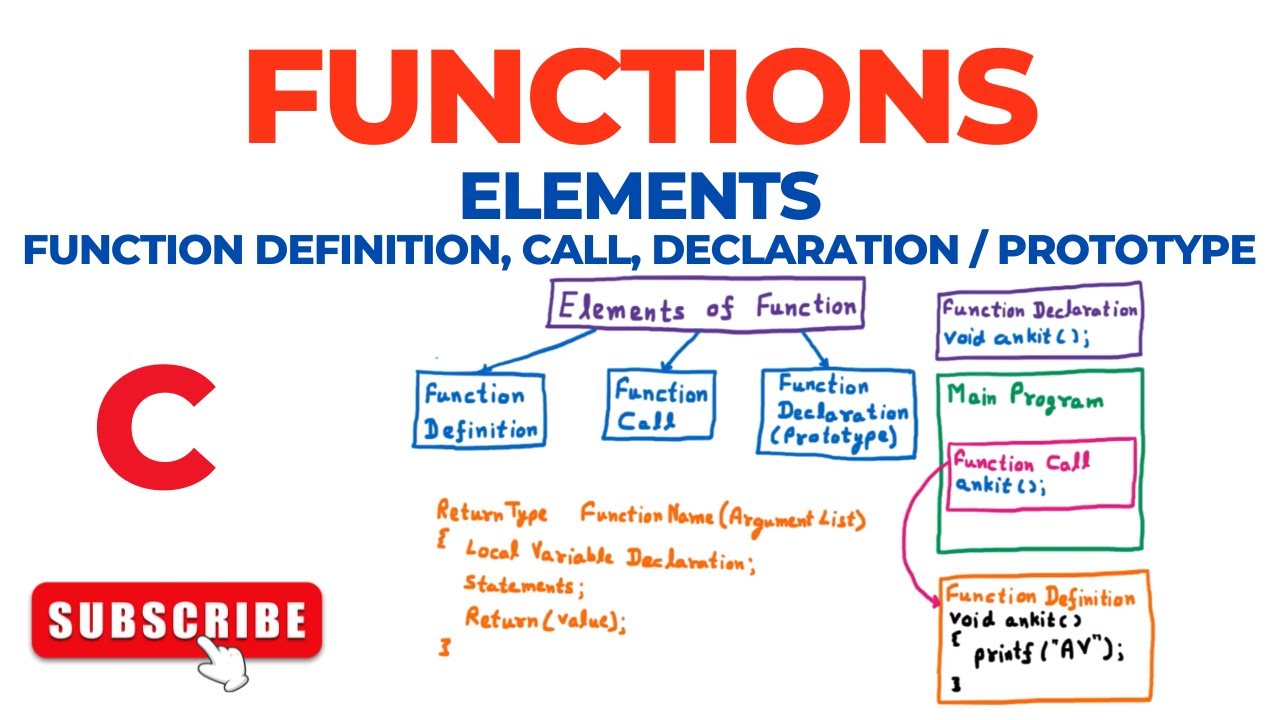 FUNCTIONS
ELEMENTS
FUNCTION DEFINITION, CALL, DECLARATION / PROTOTYPE
Elements of Function
Function
Definition
Function
Call
Function
Declaration
(Prototype)
C
Return Type Function Name (Argument List)
{
Local Variable Declaration;
Statements;
Return (value);
}
SUBSCRIBE
Function Declaration
void ankit();
Main Program
Function Call
ankit();
Function Definition
void ankit()
{
printf("AV");
}